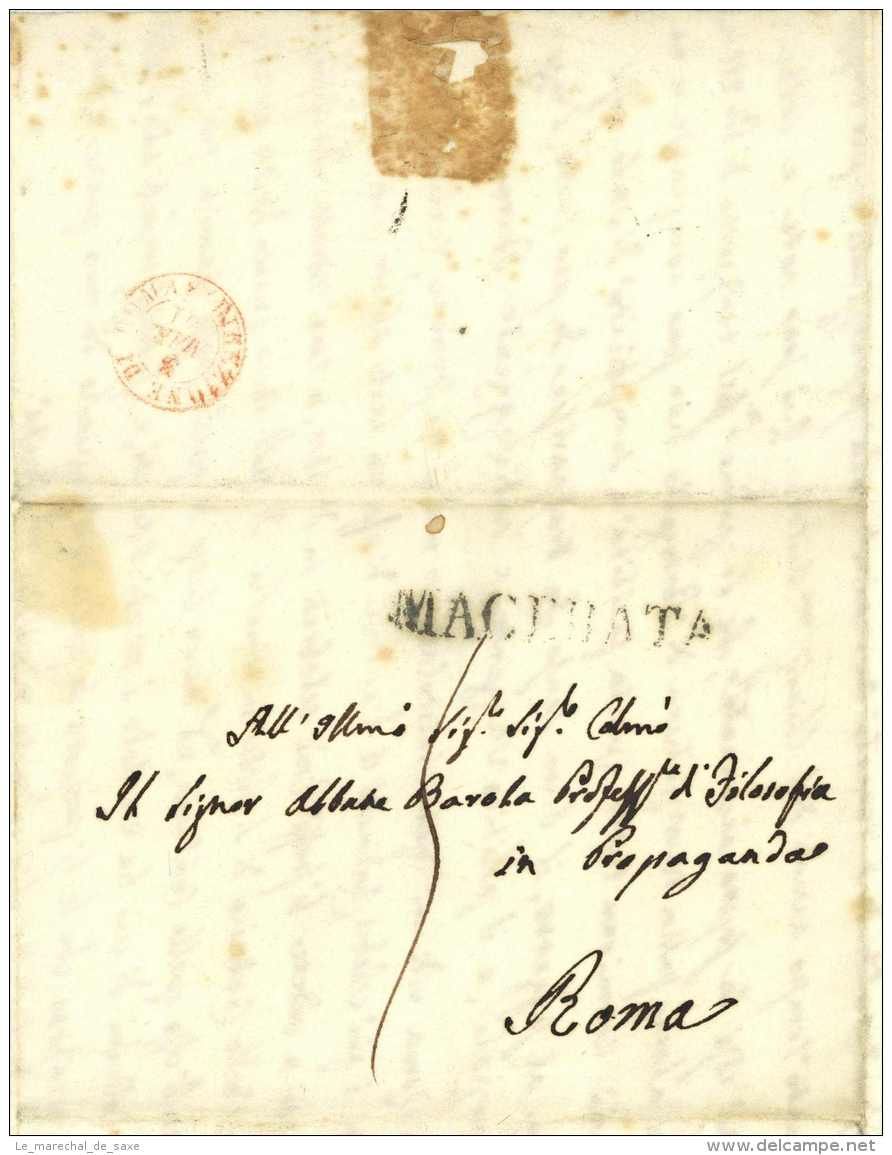 DIREZIONE DI ROMA
MAR
MACERATA
All' Illmo Sigr. Sigr. Colmo
Il Signor Abbate Barola Professre d' Filosofia
in Propaganda
Roma
Le_marechal_de_saxe
www.delcampe.net